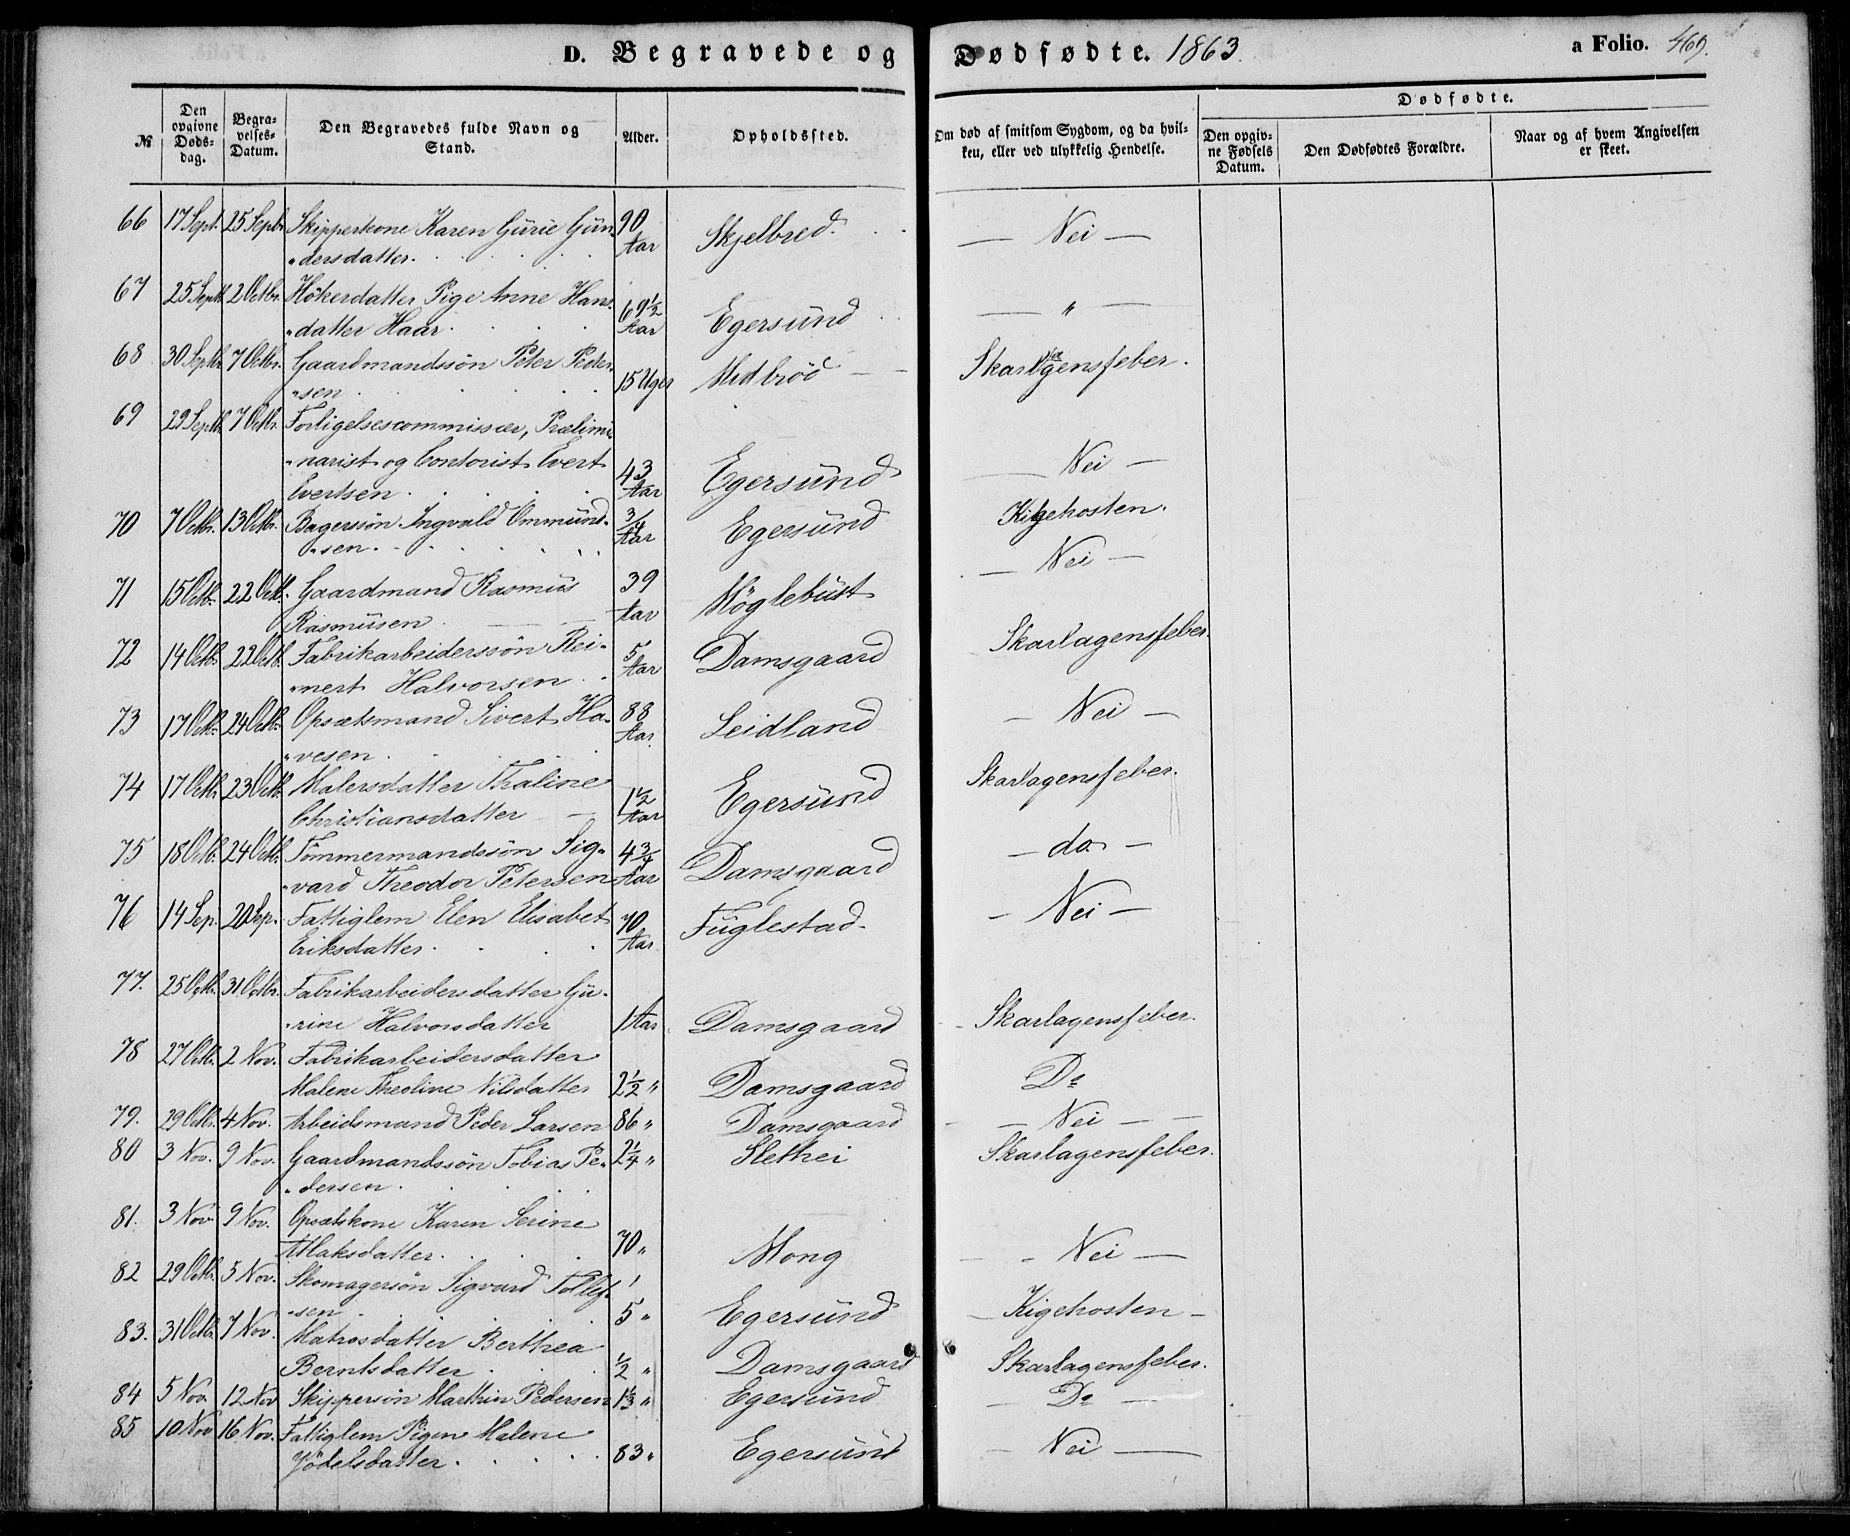 D. Begravede og Dødfødte. 1863. a Folio. 469.
№ | Den opgivne Døds-dag. | Begra-velses-Datum. | Den Begravedes fulde Navn og Stand. | Alder. | Opholdssted. | Om død af smitsom Sygdom, og da hvil-ken, eller ved ulykkelig Hendelse. | Dødfødte. | Den opgiv-ne Fødsels Datum. | Den Dødfødtes Forældre. | Naar og af hvem Angivelsen er skeet.
66 17 Sept. 25 Septbr Skipperkone Karen Gurie Gun- 90 Aar Skjelbred. — Nei —
"dersdatter.
67 25 Septb. 2 Octbr. Høkerdatter Pige Anne Hans 69 1/2 Aar Egersund — " —
"datter Haar.
68 30 Septbr 7 Octbr. Gaardmandssøn Peter Peder- 15 Uger Midbrød — Skarlagensfeber.
"sen
69 29 Septb. 7 Octbr. Forligelsescommissær, Prælimi-
"narist og Contorist Evert 43 Aar Egersund — Nei —
Evertsen
70 7 Octbr. 13 Octbr. Bagersøn Ingvald Ommund- 3/4 Aar Egersund Kighosten.
"sen.
71 15 Octb. 22 Octb. Gaardmand Rasmus 39 Aar Høglebust — Nei —
Rasmusen
72 14 Octb. 22 Octb. Fabrikarbeiderssøn Rei- 5 Aar Damsgaard Skarlagensfeber.
"nert Halvorsen
73 17 Octb. 24 Octb. Opsætsmand Sivert Ha- 88 Aar. Leidland — Nei —
"vesen
74 17 Octb. 23 Octb. Malersdatter Thaline 1 1/2 Aar Egersund Skarlagensfeber.
Christiansdatter —
75 18 Octb. 24 Octb. Tømmermandssøn Sig- 4 3/4 Aar Damsgaard — do —
"vard Theodor Petersen
76 14 Sep. 20 Sep. Fattiglem Elen Elisabet 70 Aar Fuglestad — Nei —
Eriksdatter.
77. 25 Octb. 31 Octbr. Fabrikarbeidersdatter Gu-
"rine Halvorsdatter 1 Aar Damsgaard — Skarlagensfeber.
78 27 Octb. 2 Nov. Fabrikarbeidersdatter
Malene Theoline Nilsdatter 2 1/2 " Damsgaard Do
79. 29 Octbr. 4 Nov. Arbeidsmand Peder Larsen 86 " Damsgaard — Nei —
80 3 Nov. 9 Nov. Gaardmandssøn Tobias Pe- 2 1/4 " Slethei Skarlagensfeber.
"dersen.
81. 3 Nov 9 Nov. Opsætskone Karen Serine
Atlaksdatter. 70 " Mong — Nei —
82 29 Octbr. 5 Nov. Skomagersøn Sigvard Tollef-
"sen 5 " Egersund — Kigehosten —
83. 31 Octbr. 7 Nov. Matrosdatter Berthea
Berntsdatter 1/2 " Damsgaard Skarlagensfeber.
84 5 Nov 12 Nov Skippersøn Marthin Pedersen 1 1/3 " Egersund — Do —
85 10 Nov 16 Nov. Fattiglem Pigen Malene
Jødelsdatter. 83 " Egersund — Nei —